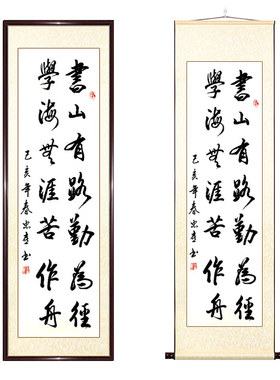 書山有路勤為徑
學海無涯苦作舟
己亥年春 书
書山有路勤為徑
學海無涯苦作舟
己亥年春 书